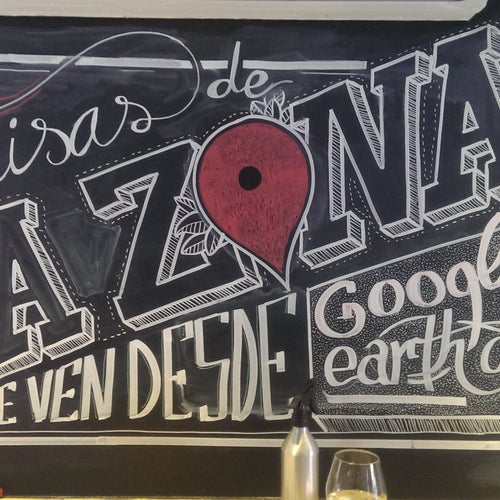 de
AZONA
VEN DESDE
Google
earth